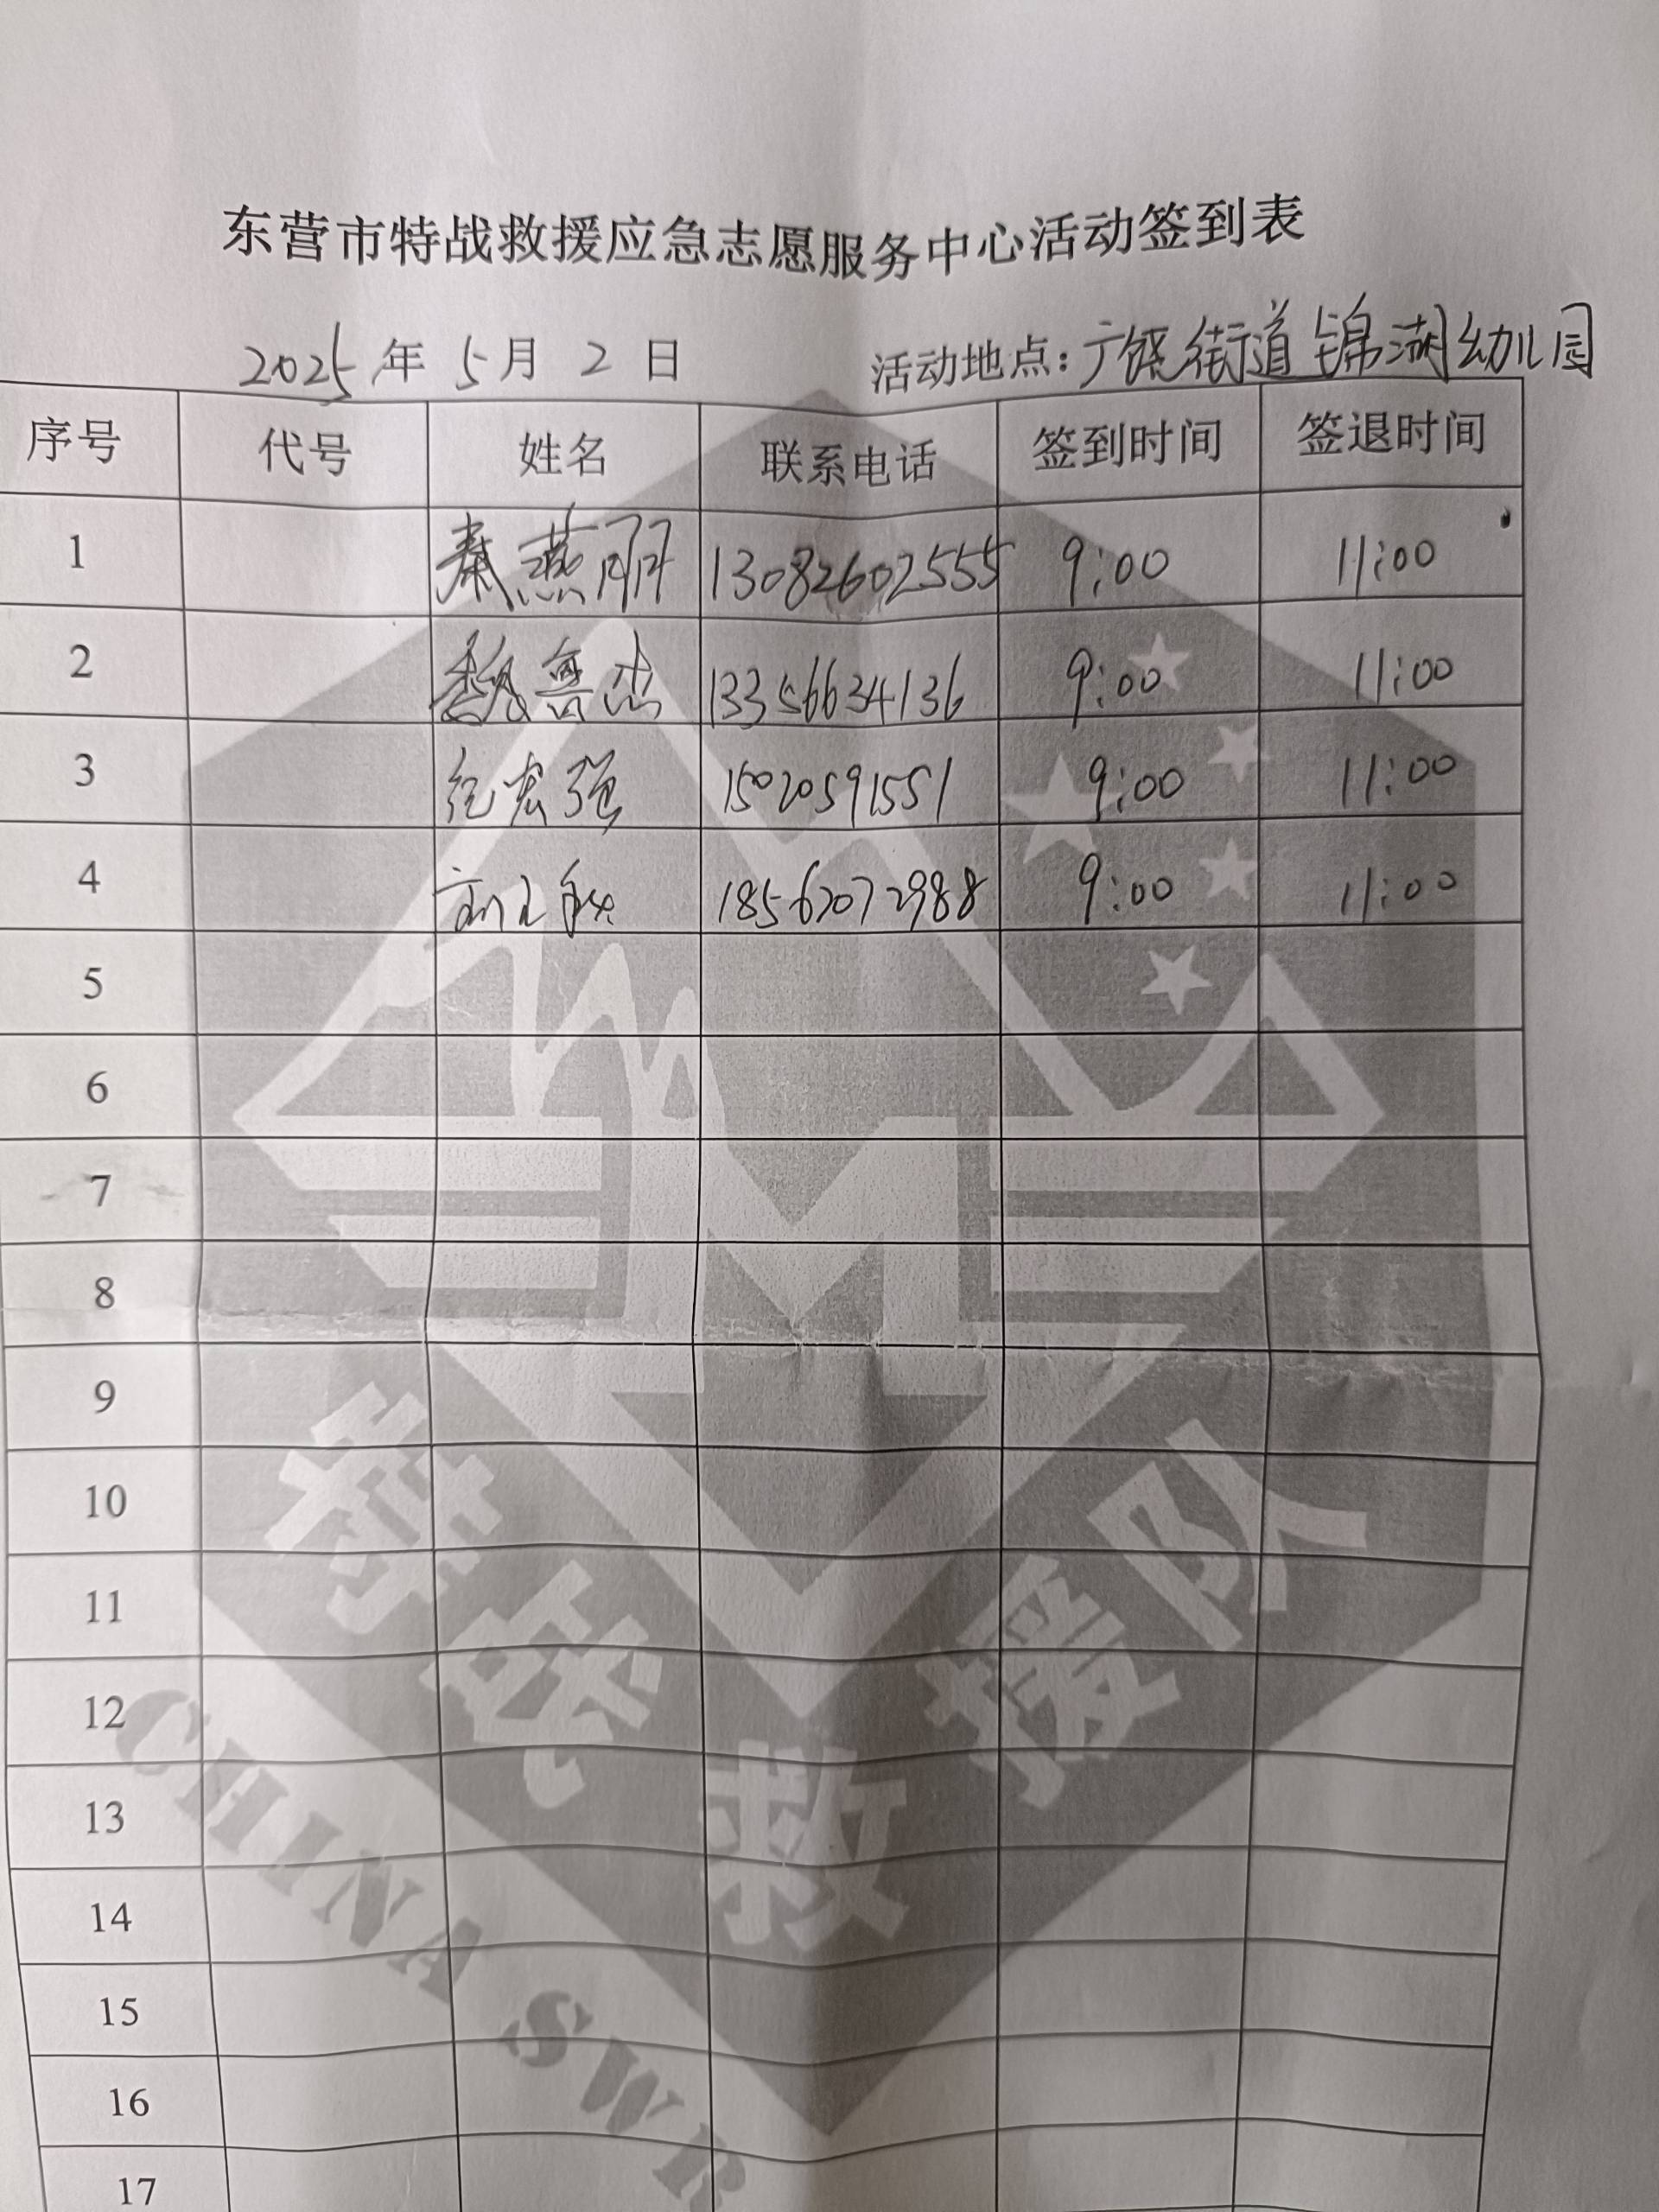 东营市特战救援应急志愿服务中心活动签到表
2025年5月2日 活动地点：广饶街道锦湖幼儿园
序号 代号 姓名 联系电话 签到时间 签退时间
1 秦燕丽 13082602555 9:00 11:00
2 魏鲁杰 13356634136 9:00 11:00
3 纪宏强 15020591551 9:00 11:00
4 18562072988 9:00 11:00
5
6
7
8
9
10
11
12
13
14
15
16
17
特战救援队
CHINA SWR